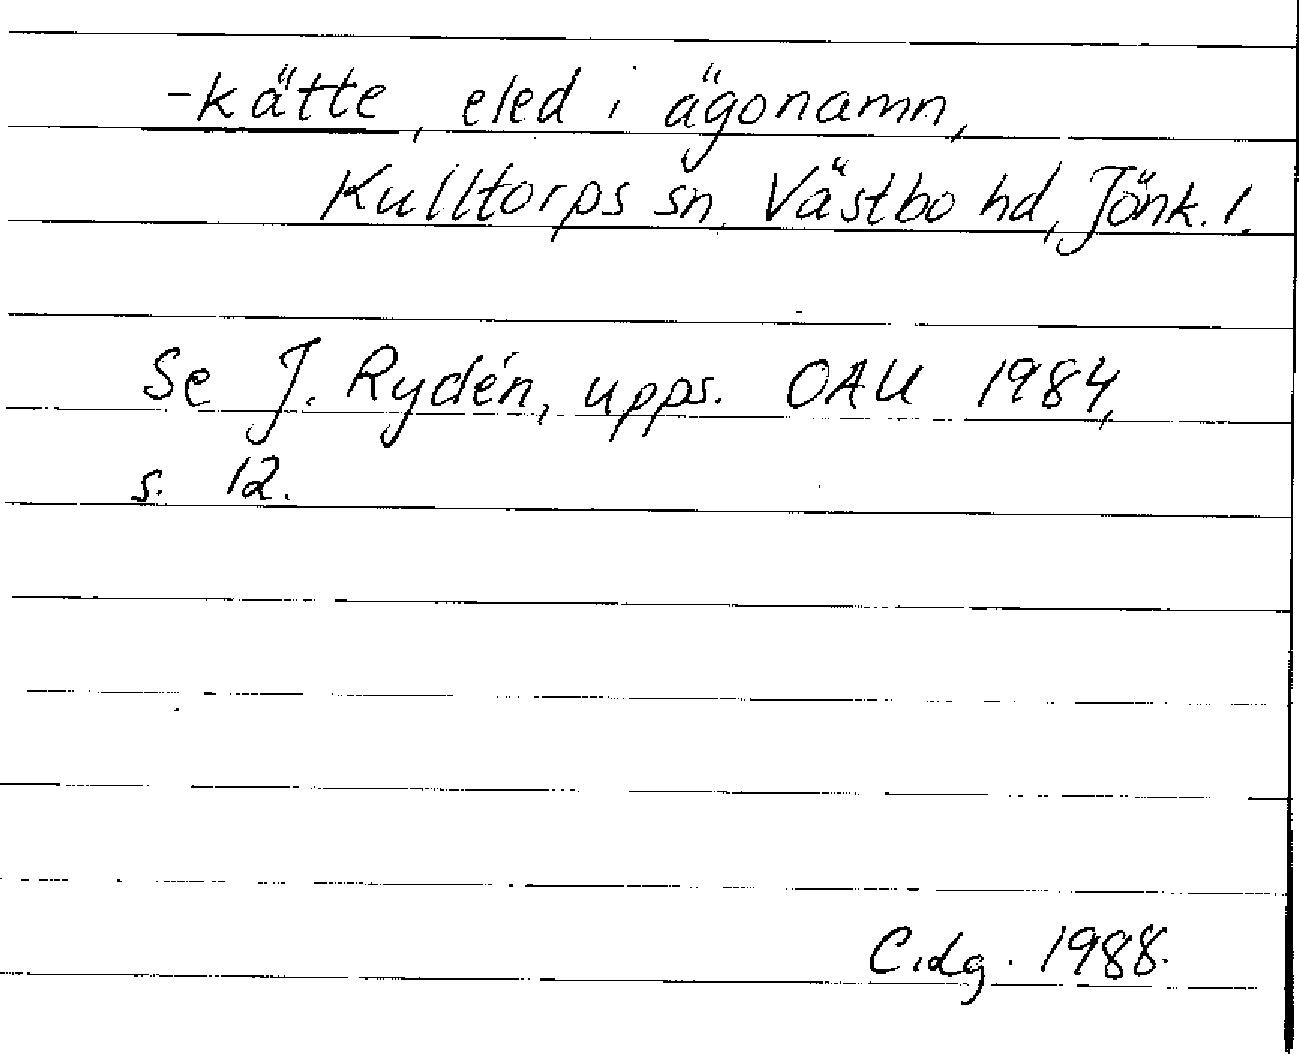 -kätte, eled i ägonamn,
Kulltorps sn, Västbo hd, Jönk. l.
Se J. Rydén, upps. OAU 1984,
s. 12.
C.dg. 1988.